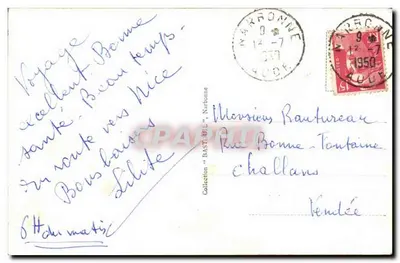 Voyage
excellent Bonne
santé. Beau temps.
en route vers Nice
Bons baisers
Lilite
6H du matin
NARBONNE
9 *
12-7
AUDE
NARBONNE
9 *
12-7
1950
AUDE
Collection "BASTARD", Narbonne
Monsieur Rautureau
Rue Bonne-Fontaine
Challans
Vendée